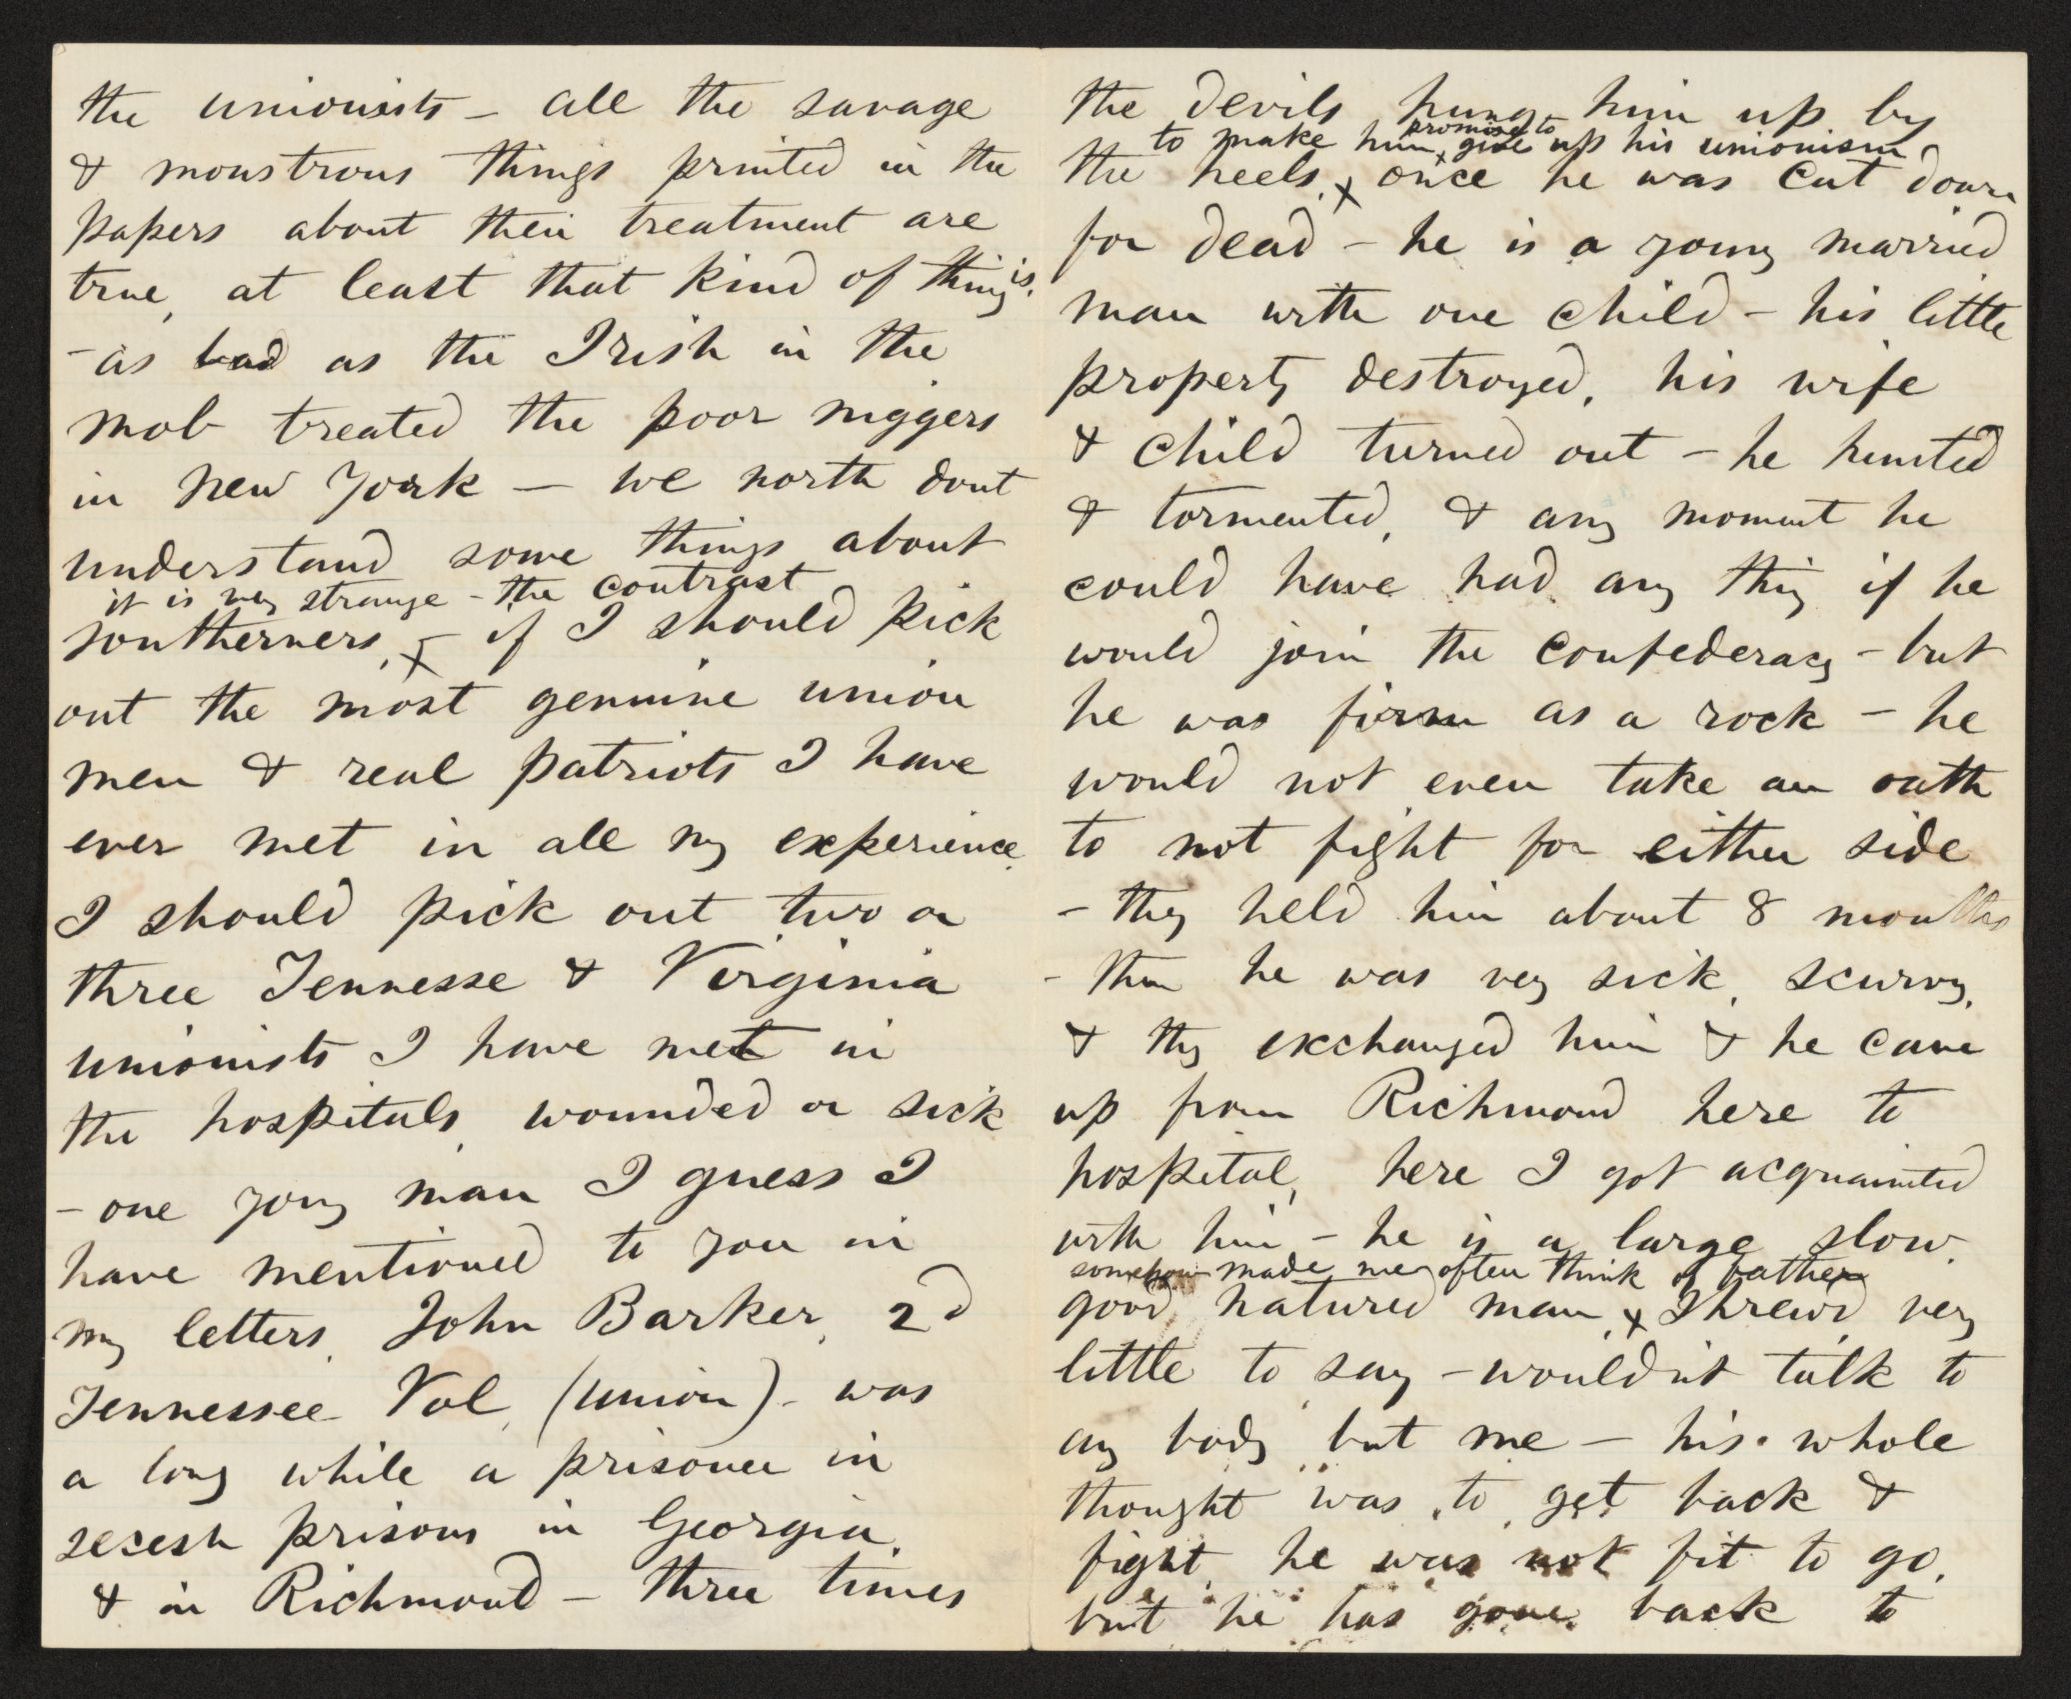 the unionists – all the savage
& monstrous things printed in the
papers about their treatment are
true, at least that kind of thing is.
– as bad as the Irish in the
mob treated the poor niggers
in New York – we north dont
understand some things about
it is very strange – the contrast
southerners, x – if I should pick
out the most genuine union
men & real patriots I have
ever met in all my experience,
I should pick out two or
three Tennesse & Virginia
unionists I have met in
the hospitals, wounded or sick
– one young man I guess I
have mentioned to you in
my letters, John Barker, 2d
Tennessee Vol, (union) – was
a long while a prisoner in
secesh prisons in Georgia,
& in Richmond – three times
the devils hung him up by
promise to
to make him x give up his unionism,
the heels, x once he was cut down
for dead – he is a young married
man with one child – his little
property destroyed, his wife
& child turned out – he hunted
& tormented, & any moment he
could have had any thing if he
would join the confederacy – but
he was firm as a rock – he
would not even take an oath
to not fight for either side
– they held him about 8 months
– then he was very sick, scurvy,
& they exchanged him & he came
up from Richmond here to
hospital, here I got acquainted
with him – he is a large, slow,
somehow made me often think of father
good natured man, x shrewd, very
little to say – wouldn't talk to
any body but me – his whole
thought was to get back &
fight, he was not fit to go,
but he has gone back to